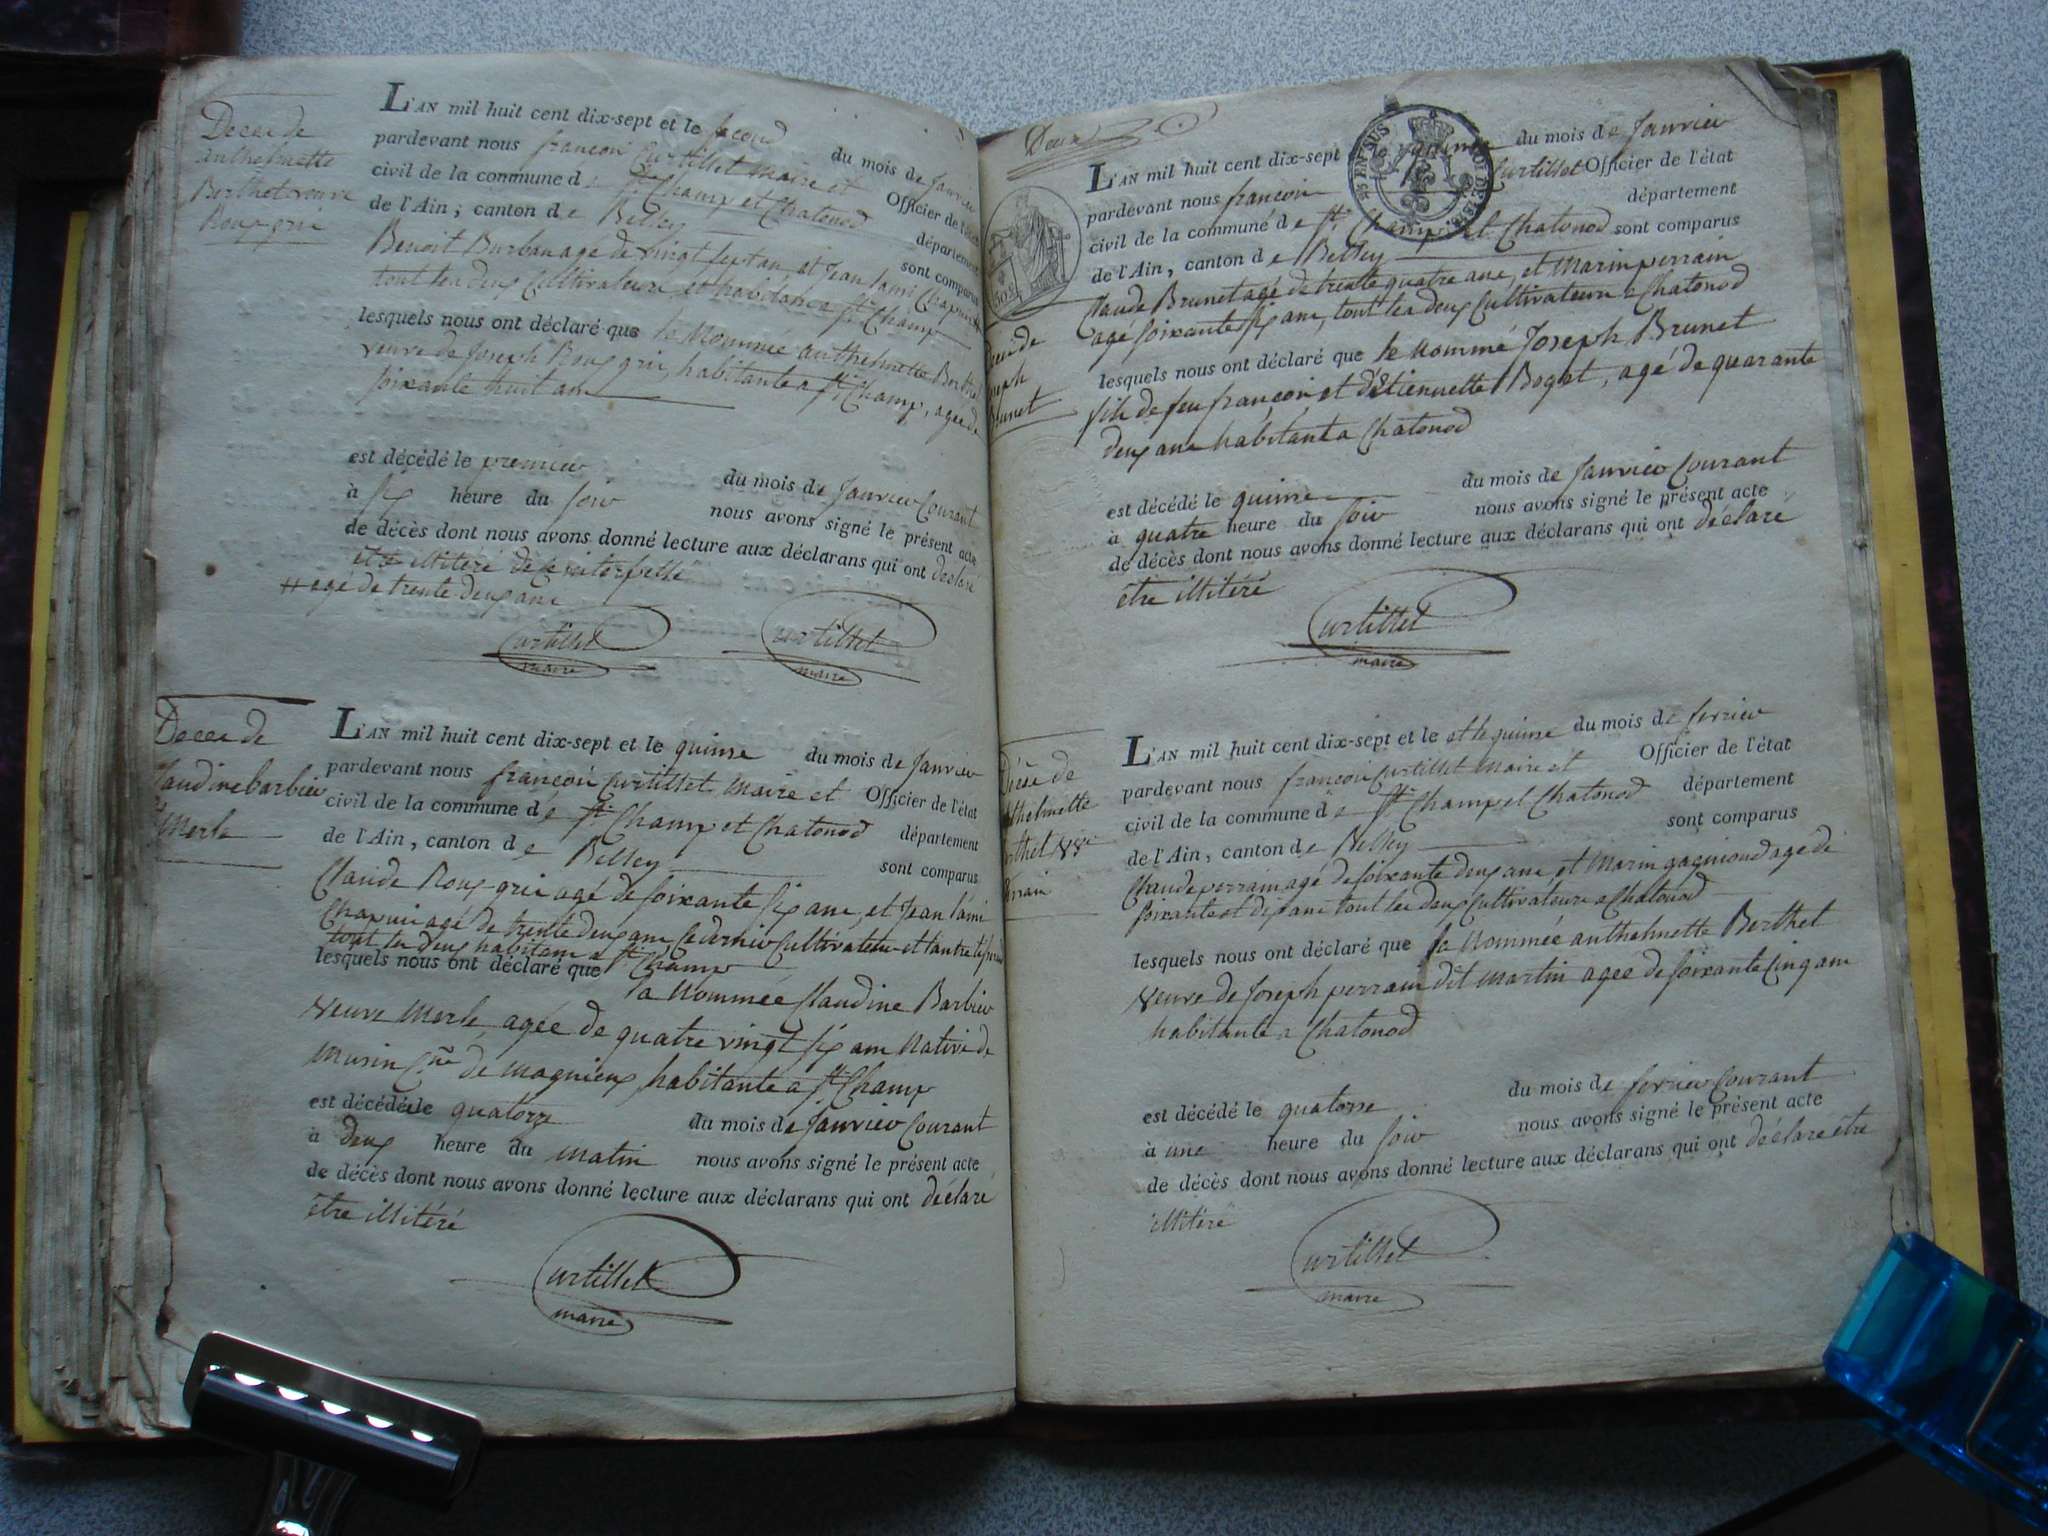 Deces de
anthelmette
Berthet veuve
Roux gris
L'AN mil huit cent dix-sept et le second du mois de Janvier
pardevant nous françois Curtillet Maire et Officier de l'état
civil de la commune de St Champ et Chatonod département
de l'Ain, canton de Belley sont comparus
Benoit Burban agé de vingt sept an, et Jean lami Chapuis #
tout les deux Cultivateurs et habitans a St Champ
lesquels nous ont déclaré que le Nommée anthelmette Berthet
veuve de Joseph Roux gris, habitante a St Champ, agée de
soixante huit ans
est décédé le premier du mois de Janvier Courant
à six heure du soir nous avons signé le présent acte
de décès dont nous avons donné lecture aux déclarans qui ont déclaré
être illitéré
# agé de trente deux ans
Curtillet Curtillet
maire maire
Deces de
Claudine barbier
Ve Merle
L'AN mil huit cent dix-sept et le quinse du mois de Janvier
pardevant nous françois Curtillet Maire et Officier de l'état
civil de la commune de St Champ et Chatonod département
de l'Ain, canton de Belley sont comparus
Claude Roux gris agé de soixante six ans, et Jean lami
Chapuis agé de trente deux ans Ce dernier Cultivateur et l'autre
tout les deux habitans a St Champ
lesquels nous ont déclaré que
la Nommée Claudine Barbier
veuve Merle, agée de quatre vingt six ans Native de
Musin Cne de Magnieux habitante a St Champ
est décédée le quatorze du mois de Janvier Courant
à deux heure du matin nous avons signé le présent acte
de décès dont nous avons donné lecture aux déclarans qui ont déclaré
être illitéré
Curtillet
maire
Deux
L'AN mil huit cent dix-sept quinse du mois de Janvier
pardevant nous françois Curtillet Officier de l'état
civil de la commune de St Champ et Chatonod département
de l'Ain, canton de Belley sont comparus
Claude Brunet agé de trente quatre ans, et Marin perrain
agé soixante six ans, tout les deux Cultivateurs a Chatonod
Deces de
Joseph
Brunet
lesquels nous ont déclaré que le Nommé Joseph Brunet
fils de feu françois et d'Etiennette Bogat, agé de quarante
deux ans habitant a Chatonod
est décédé le quinse du mois de Janvier Courant
à quatre heure du soir nous avons signé le présent acte
de décès dont nous avons donné lecture aux déclarans qui ont déclaré
être illitéré
Curtillet
maire
Décès de
anthelmette
Berthet Vve
Perrain
L'AN mil huit cent dix-sept et le et le quinse du mois de fevrier
pardevant nous françois Curtillet Maire et Officier de l'état
civil de la commune de St Champ et Chatonod département
de l'Ain, canton de Belley sont comparus
Claude perrain agé de soixante deux ans, et Marin gagniond agé de
soixante et dix ans tout les deux Cultivateurs a Chatonod
lesquels nous ont déclaré que la Nommée anthelmette Berthet
veuve de Joseph perrain dit Martin agée de soixante Cinq ans
habitante a Chatonod
est décédé le quatorse du mois de fevrier Courant
à une heure du soir nous avons signé le présent acte
de décès dont nous avons donné lecture aux déclarans qui ont déclaré être
illitéré
Curtillet
maire